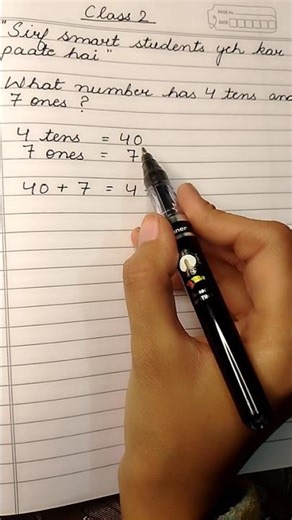 Class 2
"Sirf smart students yeh kar
paate hai"
What number has 4 tens and
7 ones ?
4 tens = 40
7 ones = 7
40 + 7 = 4